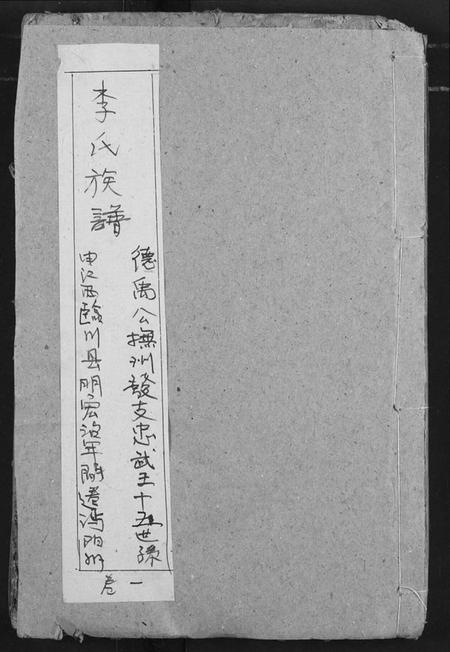 李氏族譜
德禹公撫州發支忠武王十五世孫
由江西臨川县明宏治年間遷沔阳州
卷一